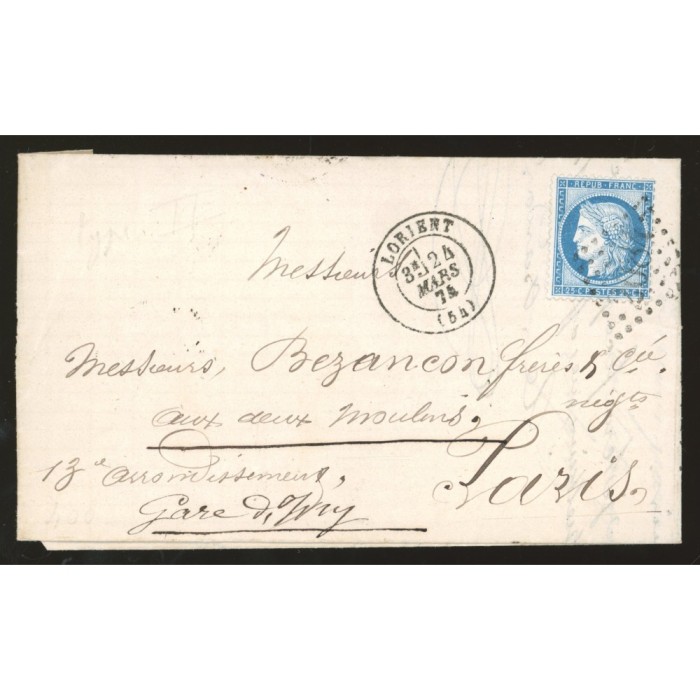 REPUB·FRANC·
25·C·POSTES·25·C·
LORIENT
3E 24
MARS
74
(54)
Messieurs
Messieurs, Bezançon frères & Cie.
négts
aux deux Moulins,
Paris,
13e arrondissement,
Gare d'Ivry